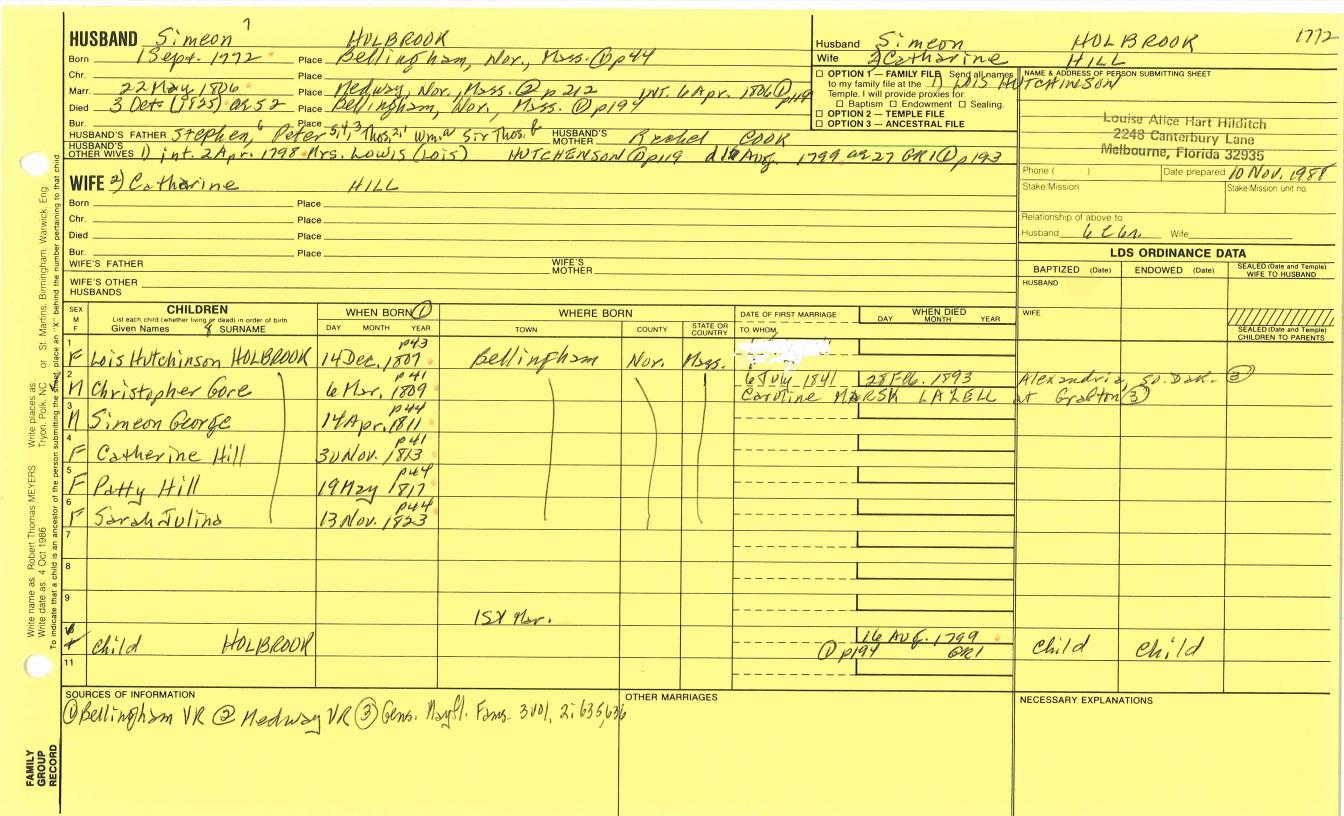 HUSBAND Simeon 7 HOLBROOK
Born 1 Sept. 1772 Place Bellingham, Nor., Mass. ① p44
Chr. Place
Marr. 22 May 1806 Place Medway, Nor., Mass. ② p 212 INT. 6 Apr. 1806 ① p119
Died 3 Oct. (1825) ae 52 Place Bellingham, Nor, Mass. ① p194
Bur. Place
HUSBAND'S FATHER Stephen, 6 Peter 5,4,3 Thos. 2,1 Wm. a Sir Thos. b HUSBAND'S MOTHER Rachel COOK
HUSBAND'S OTHER WIVES 1) int. 2 Apr. 1798 Mrs. Lowis (Lois) HUTCHENSON ① p119 d 16 Aug. 1799 ae 27 GR1 ① p193
WIFE 2) Catharine HILL
Born Place
Chr. Place
Died Place
Bur. Place
WIFE'S FATHER WIFE'S MOTHER
WIFE'S OTHER HUSBANDS
Husband Simeon HOLBROOK 1772
Wife 2) Catharine HILL
1) LOIS HUTCHINSON
☐ OPTION 1 — FAMILY FILE Send all names
to my family file at the
Temple. I will provide proxies for
☐ Baptism ☐ Endowment ☐ Sealing.
☐ OPTION 2 — TEMPLE FILE
☐ OPTION 3 — ANCESTRAL FILE
NAME & ADDRESS OF PERSON SUBMITTING SHEET
Louise Alice Hart Hilditch
2248 Canterbury Lane
Melbourne, Florida 32935
Phone ( ) Date prepared 10 Nov. 1988
Stake/Mission Stake/Mission unit no.
Relationship of above to
Husband 6 C 6r. Wife
LDS ORDINANCE DATA
BAPTIZED (Date) ENDOWED (Date) SEALED (Date and Temple) WIFE TO HUSBAND
HUSBAND
WIFE
SEALED (Date and Temple) CHILDREN TO PARENTS
SEX M F CHILDREN List each child (whether living or dead) in order of birth Given Names SURNAME
WHEN BORN ① DAY MONTH YEAR
WHERE BORN TOWN COUNTY STATE OR COUNTRY
DATE OF FIRST MARRIAGE TO WHOM
WHEN DIED DAY MONTH YEAR
1 F Lois Hutchinson HOLBROOK 14 Dec. 1807 p43 Bellingham Nor. Mass.
2 M Christopher Gore 6 Mar. 1809 p41 6 July 1841 28 Feb. 1893 Alexandria, So. Dak. ③
Caroline MARSH LAZELL at Grafton ③
3 M Simeon George 14 Apr. 1811 p44
4 F Catherine Hill 30 Nov. 1813 p41
5 F Patty Hill 19 May 1817 p44
6 F Sarah Julina 13 Nov. 1823 p44
7
8
9
1st Mar.
child HOLBROOK 16 AUG. 1799 child child
① p194 GR1
11
SOURCES OF INFORMATION
① Bellingham VR ② Medway VR ③ Gens. Mayfl. Fams. 3 vol, 2: 635,636
OTHER MARRIAGES
NECESSARY EXPLANATIONS
Write name as: Robert Thomas MEYERS Write places as: Tryon, Polk, NC or St. Martins, Birmingham, Warwick, Eng.
Write date as: 4 Oct 1986
To indicate that a child is an ancestor of the person submitting the sheet, place an "X" behind the number pertaining to that child
FAMILY GROUP RECORD